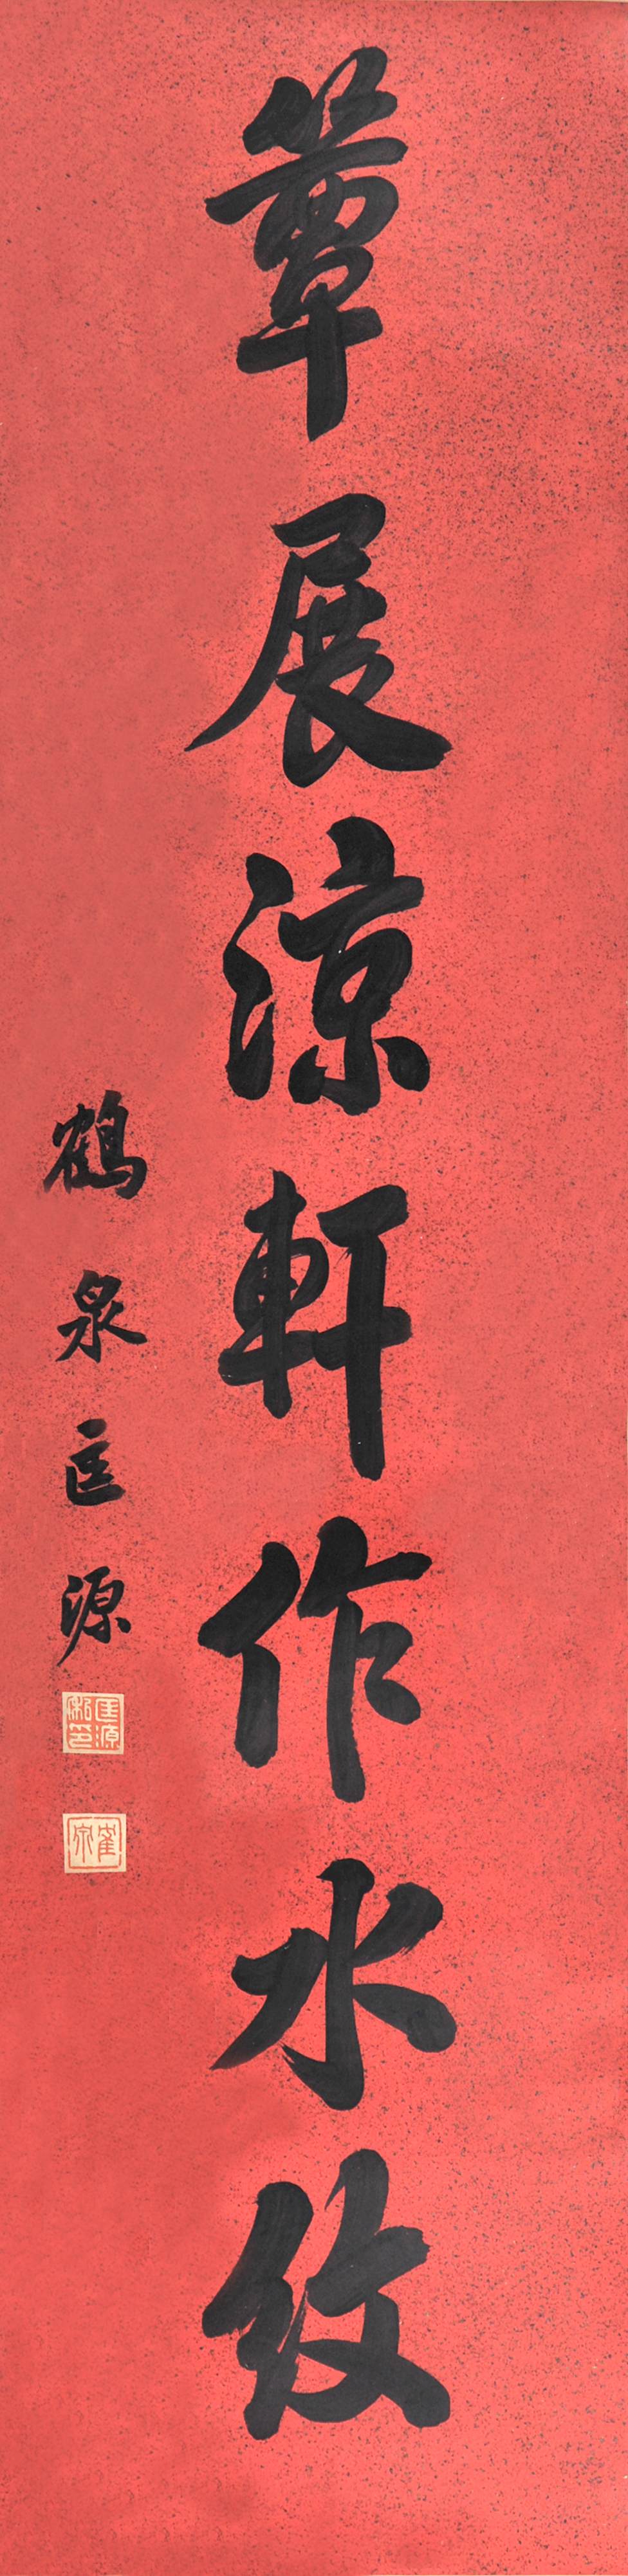 簟展涼軒作水紋
鶴泉匡源
匡源私印
隺泉